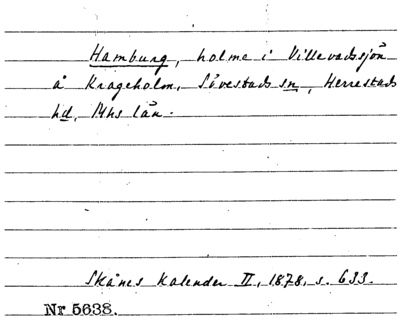 Hamburg, holme i Villevadssjön
å Krageholm, Sövestads sn, Herrestads
hd, Mhs län.
Skånes Kalender II, 1878, s. 633.
Nr 5638.